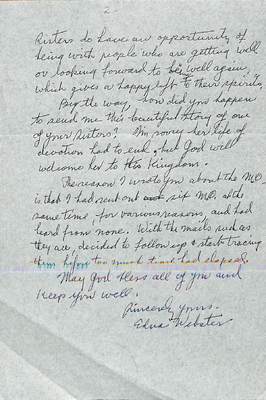 2.
Sisters do have an opportunity of
being with people who are getting well
or looking forward to being well again,
which gives a happy lift to their spirits.
By the way, how did you happen
to send me this beautiful story of one
of your Sisters? I'm sorry her life of
devotion had to end, but God will
welcome her to His Kingdom.
The reason I wrote you about the MO
is that I had sent out six MO. at the
same time for various reasons, and had
heard from none. With the mails such as
they are, decided to follow up & start tracing
them before too much time had elapsed.
May God bless all of you and
keep you well.
Sincerely yours,
Edna Webster